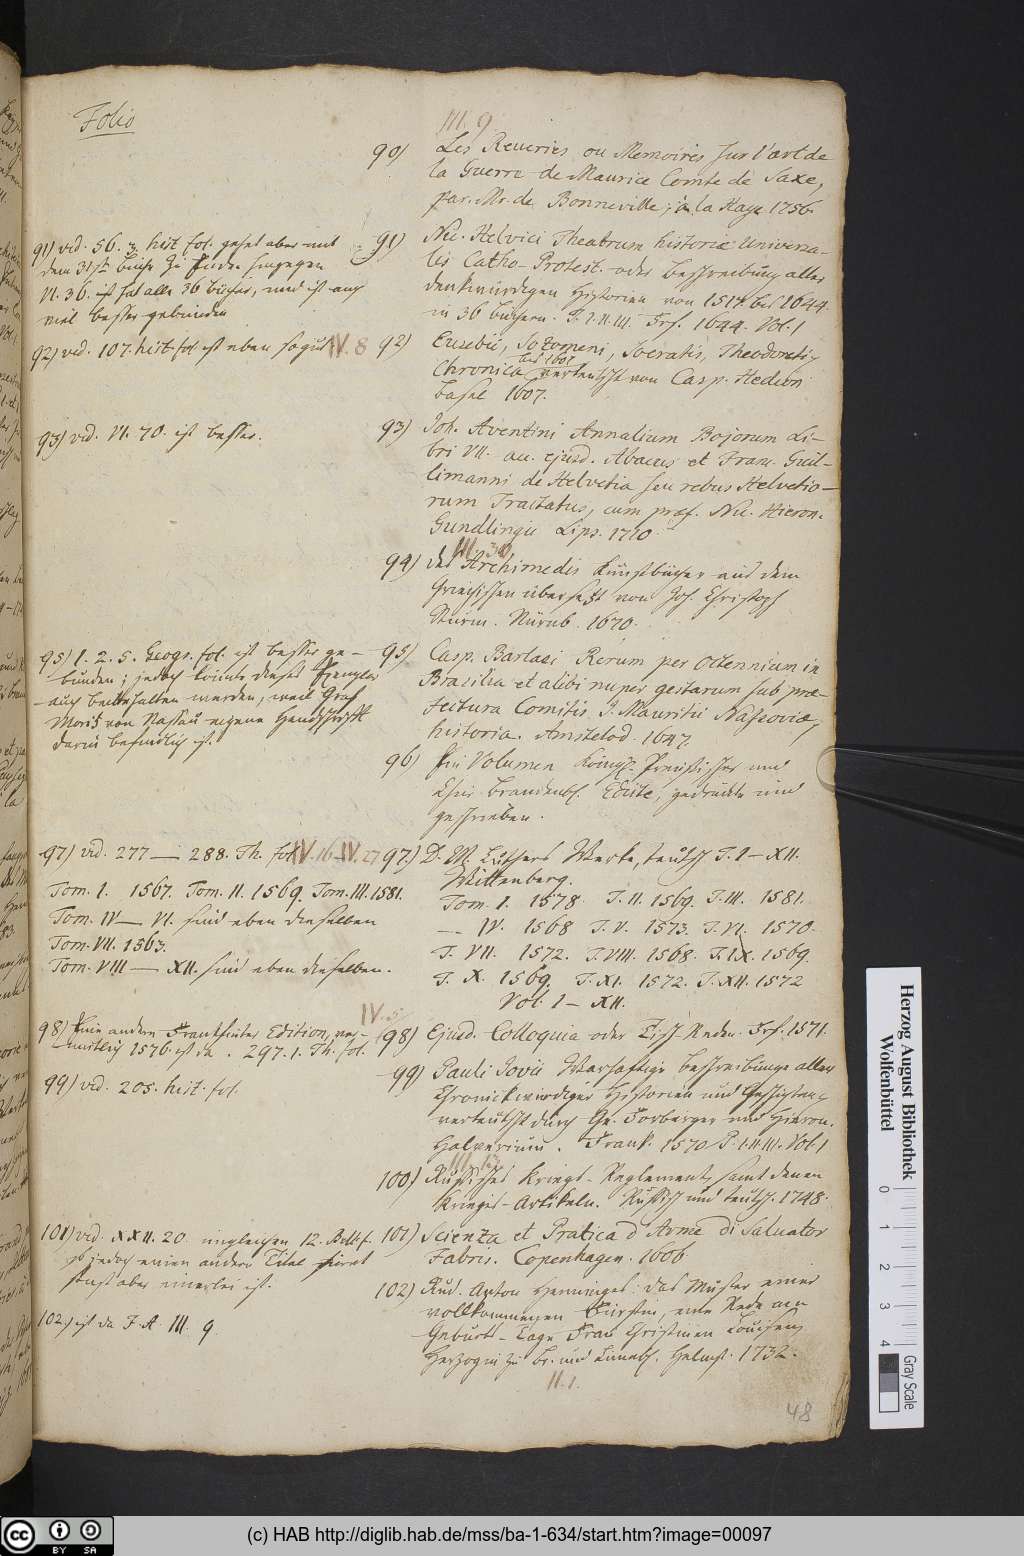 Folio
III. 9
90) Les Reveries ou Memoires sur l'art de
la Guerre de Maurice Comte de Saxe,
par Mr. de Bonneville, à la Haye 1756.
91) vid. 56. hist. fol. gehet aber mit
dem 31st Buche zu Ende hingegen
VI. 36. ist hat alle 36 bücher, und ist auch
viel besser gebunden
91) Nic. Helvici Theatrum historiæ Universa-
lis Catho- Protest. oder beschreibung aller
denkwürdigen Historien von 1517 bis 1644
in 36 büchern. T. I. II. III. Frf. 1644. Vol. 1
92) vid. 107. hist. fol. ist eben so gut
IV. 8
92) Eusebii, Sozomeni, Socratis, Theodoreti
Chronica bis 1601 verteutscht von Casp. Hedion
basel 1607.
93) vid. VI. 70. ist besser.
93) Joh. Aventini Annalium Bojorum Li-
bri VII. acc. ejusd. Abacus et Franc. Guil-
limanni de Helvetia seu rebus Helvetio-
rum Tractatus, cum præf. Nic. Hieron.
Gundlingii Lips. 1710.
III. 30
94) des Archimedis Kunstbücher aus dem
Griechischen übersetzt von Joh. Christoph
Sturm. Nürnb. 1670.
95) 1. 2. 5. Geogr. fol. ist besser ge-
bunden; jedoch könnte dieses Exemplar
auch beibehalten werden, weil Graf
Moritz von Nassau eigene Handschrifft
darin befindlich ist.
95) Casp. Barlaei Rerum per Octennium in
Brasilia et alibi nuper gestarum sub præ-
fectura Comitis J. Mauritii Nassoviæ,
historia. Amstelod. 1647.
96) Ein Volumen Königl. Preußischer und
Chur brandenb. Edicte, gedruckte und
geschrieben.
97) vid. 277 — 288. Th. fol.
IV. 16 - IV. 27
Tom. I. 1567. Tom. II. 1569. Tom. III. 1581.
Tom. IV — VI. sind eben dieselben
Tom. VII. 1563.
Tom. VIII — XII. sind eben dieselben.
97.) D. M. Luthers Werke, teutsch T. I - XII.
Wittenberg.
Tom. I. 1578. T. II. 1569. T. III. 1581.
— IV. 1568 T. V. 1573. T. VI. 1570.
T. VII. 1572. T. VIII. 1568. T. IX. 1569.
T. X. 1569. T. XI. 1572. T. XII. 1572
Vol. I - XII.
IV. 5
98) Eine andere Frankfurter Edition,
1576. ist da. 297. 1. Th. fol.
98) Ejusd. Colloquia oder Tisch-Reden. Frf. 1571.
99) vid. 205. hist. fol.
99) Pauli Jovii Warhaftige beschreibunge aller
Chronickwürdiger Historien und Geschichten,
verteutscht durch Ge. Forberger und Hieron.
Halverium. Frankf. 1570 P. I. II. III. Vol. 1
100) Russisches Kriegs-Reglement, samt denen
Kriegs-Artikeln. Russisch und teutsch. 1748.
101) vid. XXII. 20. ungleichen 12. Bell. f.
ob jedoch einen andern Titel führet
sonst aber einerlei ist.
101) Scienza et Pratica d'Arme di Salvator
Fabris. Copenhagen. 1606
102) ist da F. A. III. 9.
102) Rud. Anton Henninges: das Muster einer
vollkommenen Fürstin, eine Rede am
Geburts-Tage Frau Christinen Louisen
Herzogin zu Br. und Lüneb. Helmst. 1732.
II. 1.
48
Herzog August Bibliothek
Wolfenbüttel
0 1 2 3 4
Gray Scale
(c) HAB http://diglib.hab.de/mss/ba-1-634/start.htm?image=00097
cc BY SA